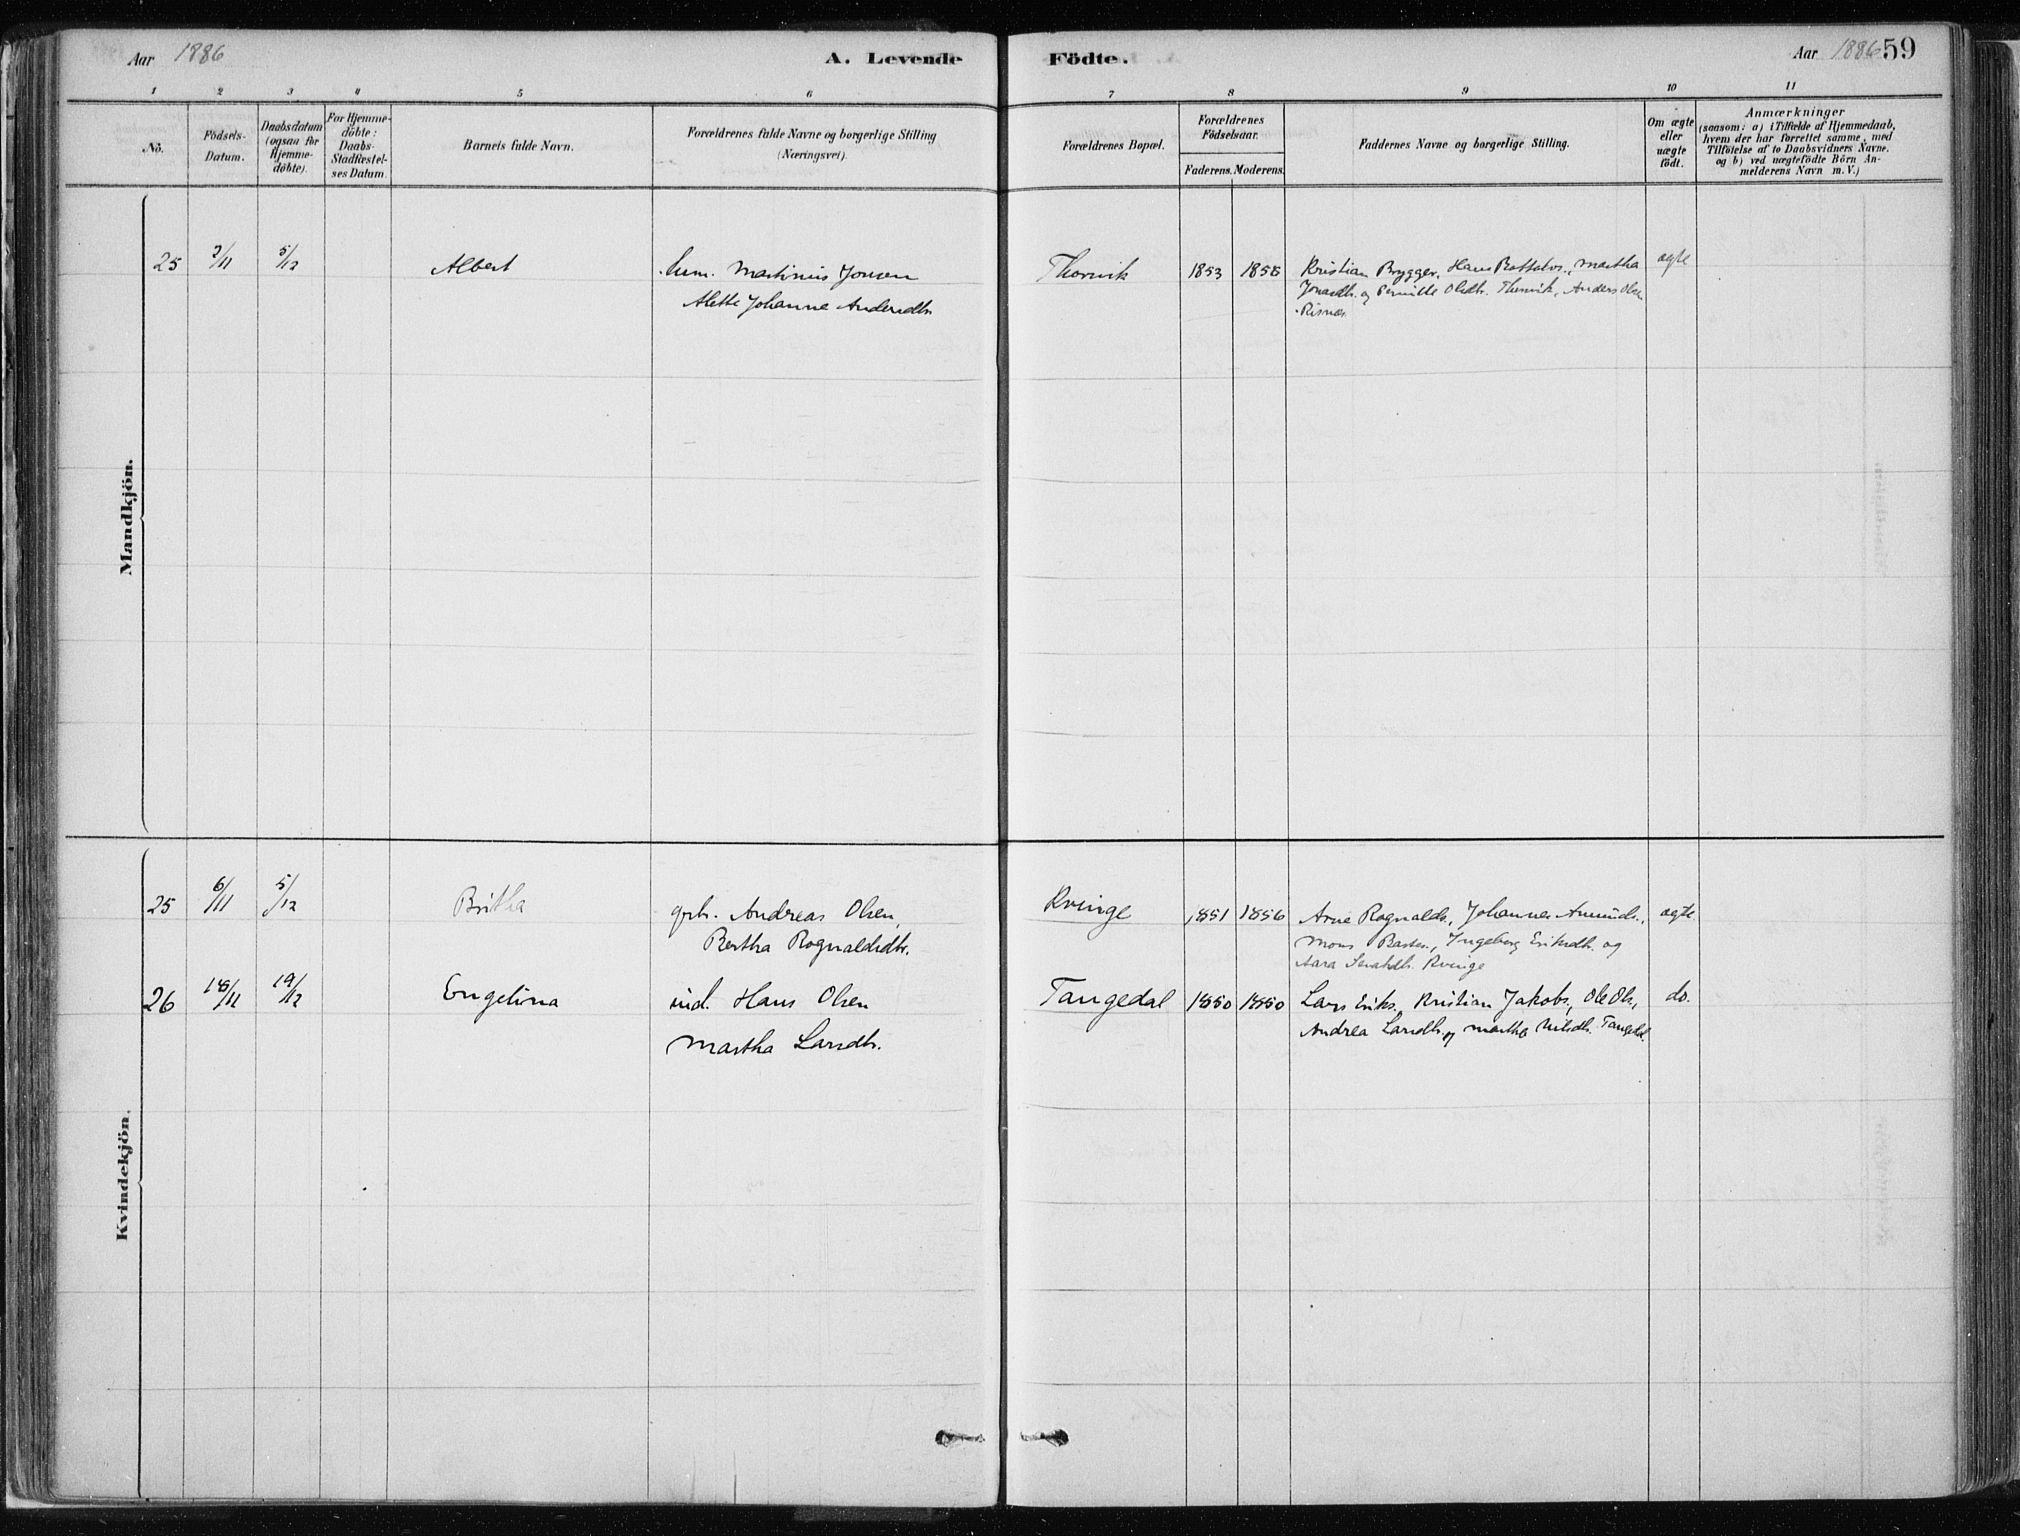 Aar 1886
A. Levende
Födte.
Aar 1886
59
1 2 3 4 5 6 7 8 9 10 11
No.
Födsels-
Datum.
Daabsdatum
(ogsaa for
Hjemme-
döbte).
For Hjemme-
döbte:
Daabs-
Stadfæstel-
ses Datum.
Barnets fulde Navn.
Forældrenes fulde Navne og borgerlige Stilling
(Næringsvei).
Forældrenes Bopæl.
Forældrenes
Födselsaar.
Faderens. Moderens.
Faddernes Navne og borgerlige Stilling.
Om ægte
eller
uægte
födt.
Anmærkninger
(saasom: a) i Tilfælde af Hjemmedaab,
hvem der har forrettet samme, med
Tilföielse af to Daabsvidners Navne.
og b) ved uægtefödte Börn An-
melderens Navn m. V.)
Mandkjön.
25 /11 5/12 Albert
Martinus Jonsen
Alette Johanne Andersdtr.
Thorvik 1853
Kristian Brygger, Hans Martha
Jonasdtr. og Pernille Olsdtr. Thorvik, Anders Olsen
Risnæs.
ægte
Kvindekjön.
25 6/11 5/12 Britha
grbr. Andreas Olsen,
Bertha Rognaldsdtr.
Kvinge 1851 1856
Arne Rognalds., Johannes Amunds.,
Mons Ingeborg Eriksdtr. og
Kvinge
ægte
26 18/11 19/12 Engelina
ind. Hans Olsen
Martha Larsdtr.
Tangedal 1850 1850
Lars Eriks., Kristian Jakobs., Ole Ols.,
Andrea Larsdtr. og Martha Nilsdtr. Tangedal.
do.